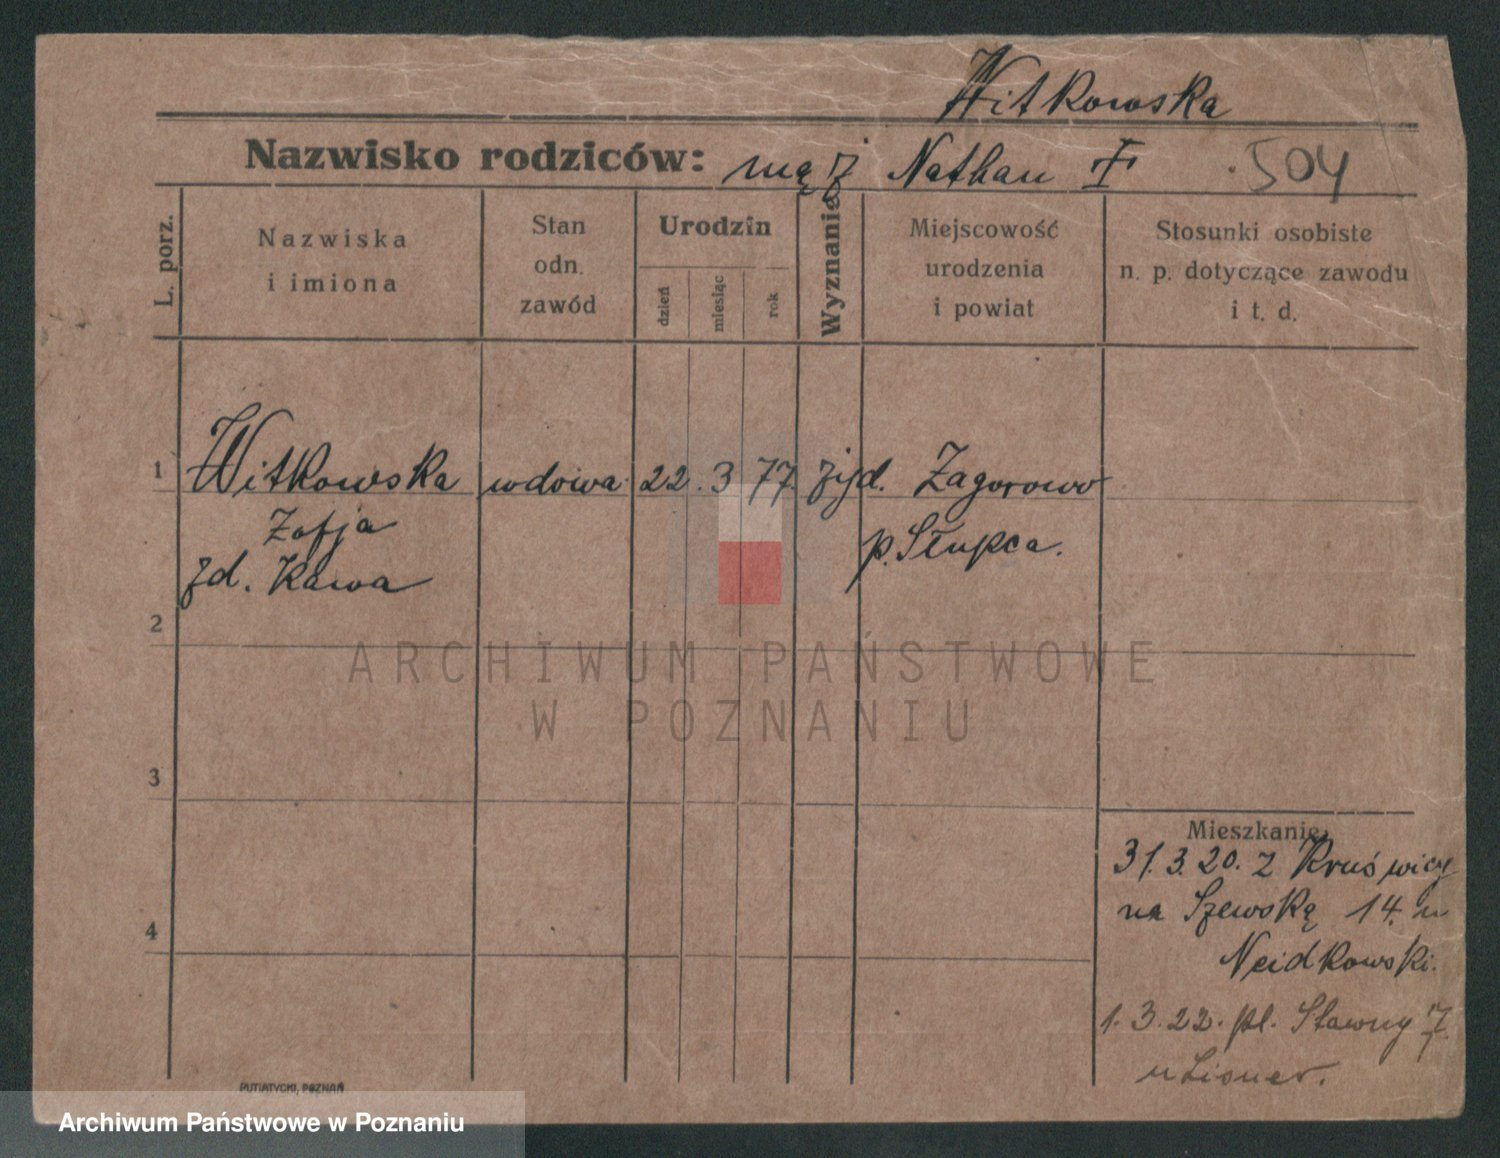 Witkowska
Nazwisko rodziców: mąż Nathan †
504
L. porz.
Nazwiska
i imiona
Stan
odn.
zawód
Urodzin
dzień
miesiąc
rok
Wyznanie
Miejscowość
urodzenia
i powiat
Stosunki osobiste
n. p. dotyczące zawodu
i t. d.
1 Witkowska wdowa 22. 3 77. żyd. Zagorowo
Zofja
p. Słupca.
zd. Kawa
2
3
4
ARCHIWUM PAŃSTWOWE
W POZNANIU
Mieszkanie
31.3.20. z Kruświcy
na Szewską 14. u
Neidkowski.
1.3.22. pl. Sławny 7.
u
PUTIATYCKI, POZNAŃ
Archiwum Państwowe w Poznaniu